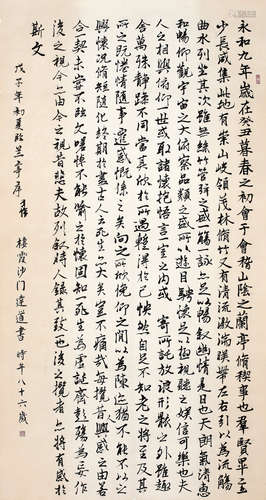 永和九年歲在癸丑暮春之初會于會稽山陰之蘭亭脩稧事也羣賢畢至
少長咸集此地有崇山峻領茂林脩竹又有清流激湍暎帶左右引以為流觴
曲水列坐其次雖無絲竹管弦之盛一觴一詠亦足以暢敘幽情是日也天朗氣清惠風
和暢仰觀宇宙之大俯察品類之盛所以遊目騁懷足以極視聽之娛信可樂也夫
人之相與俯仰一世或取諸懷抱悟言一室之內或因寄所託放浪形骸之外雖趣
舍萬殊靜躁不同當其欣於所遇暫得於己快然自足不知老之將至及其
所之既惓情隨事遷感慨係之矣向之所欣俛仰之間以為陳迹猶不能不以之
興懷況脩短隨化終期於盡古人云死生亦大矣豈不痛哉每攬昔人興感之由若
合一契未嘗不臨文嗟悼不能喻之於懷固知一死生為虛誕齊彭殤為妄作
後之視今亦由今之視昔悲夫故列敘時人錄其致一也後之攬者亦將有感於
斯文
戊子年初夏蘭亭序
棲霞沙門達道書 時年八十六歲